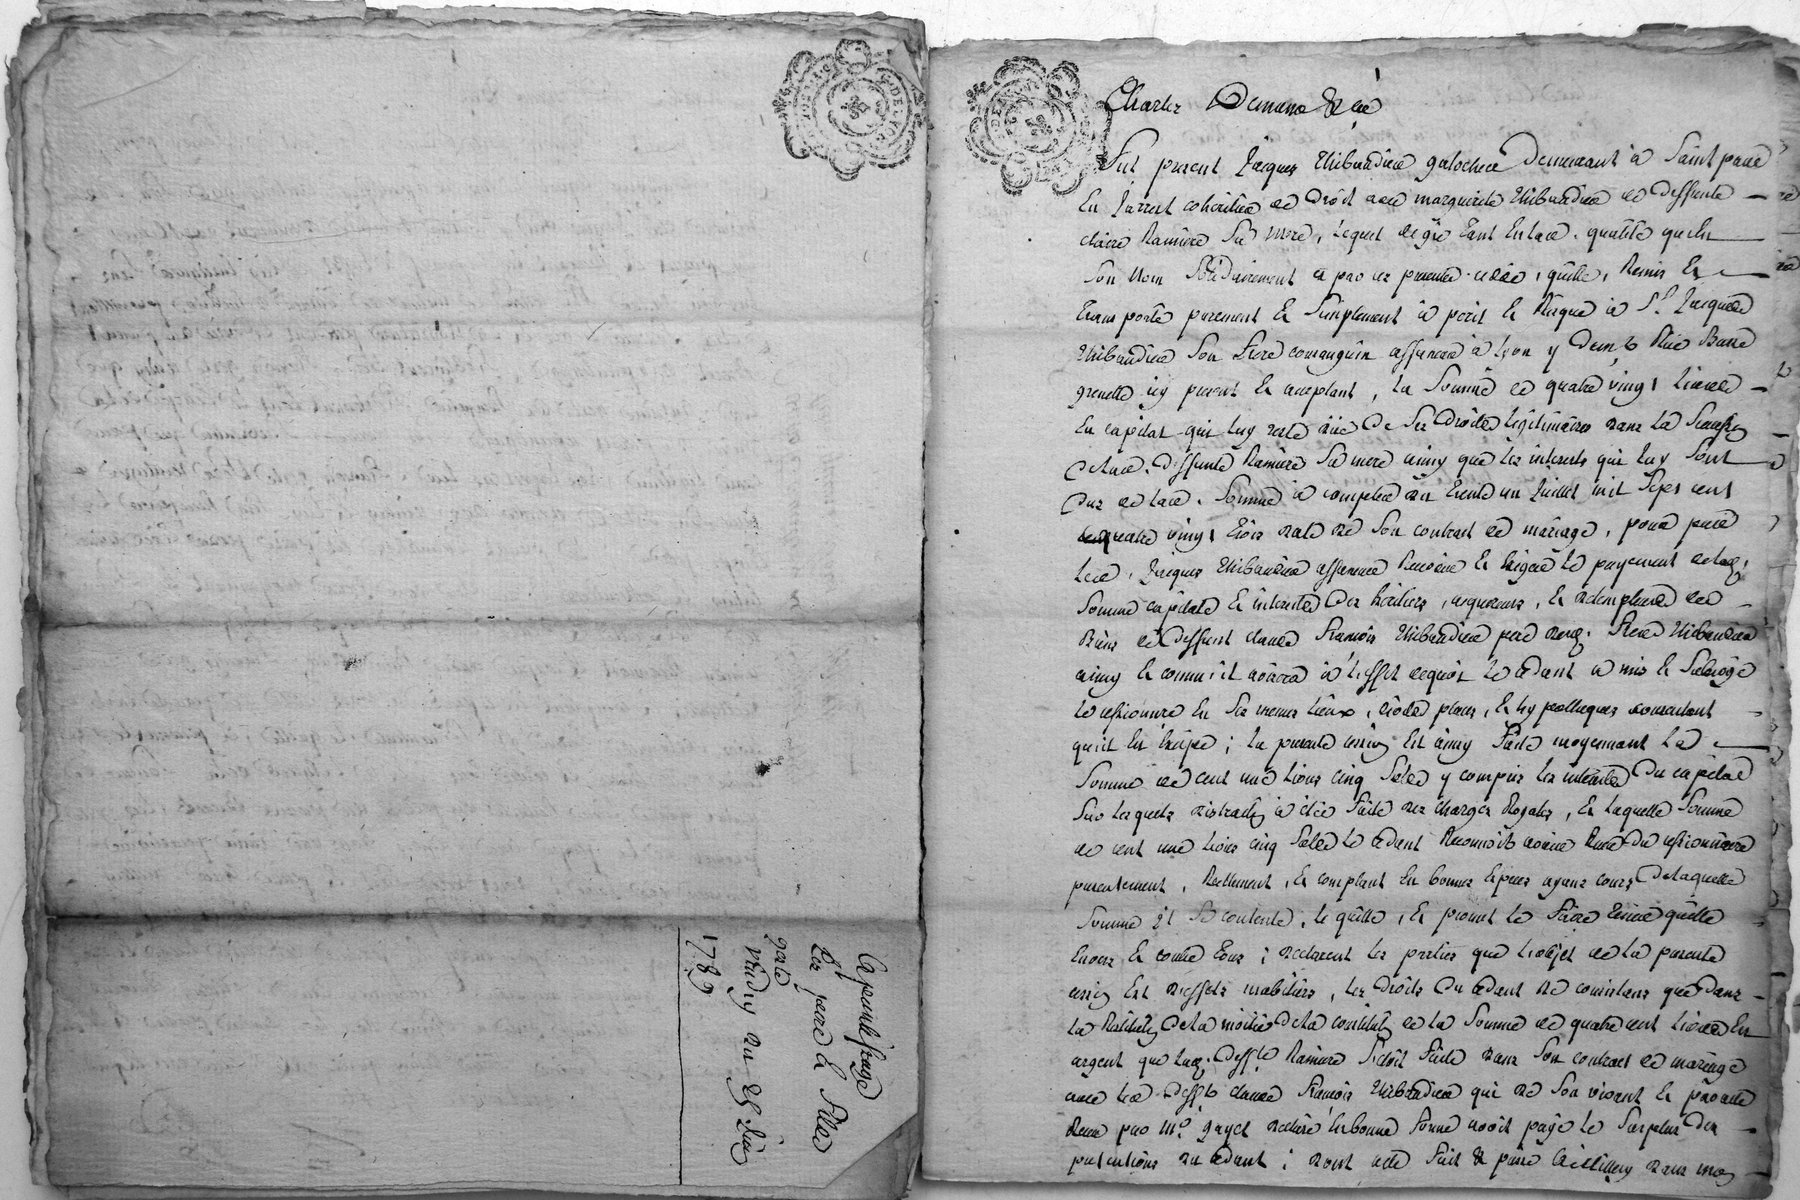 Apprentissage
Les pere & fils
verdy du 25 Juin
1789
Charles
Fut present Jacques Thibaudier galochier demeurant à Saint paul
En Jarrest cohéritier de Droit avec marguerite Thibaudier de deffunte
claire Ramiere Sa mere, lequel de gré tant En lad. qualité qu'en
Son nom Solidairement a par ces presentes cede, quitte, Remis Et
transporte purement & Simplement à peril & Risque à Sr. Jacques
Thibaudier Son frere consanguin affaneur à Lyon y demt. Rue Basse
grenelle icy present & acceptant, la Somme de quatre vingt livres
En capital qui luy reste due de Ses droits légitimaires dans la
De lad. deffunte Ramiere Sa mere ainsy que les interests qui luy Sont
Dus de lad. Somme à compter du trente un Juillet mil Sept cent
quatre vingt trois date de Son contrat de mariage, pour par
led. Jacques Thibaudier affaneur Recevoir & Exiger le payement de lad.
Somme capitale & interests Des héritiers, acquereurs, & detempteurs des
Biens de deffunt claude François Thibaudier pere desd. freres Thibaudier
ainsy & comme il avisera à l'effet dequoy le cedant a mis & Subrogé
le cessionnaire En Ses memes lieux, droits, places, & hypotheques consentant
qu'il En Excipe; la presente cession Est ainsy faite moyennant la
Somme de cent une livres cinq Sols y compris les interests du capital
Sur lesquels distraction a été faite des charges Royales, Et laquelle Somme
de cent une livres cinq Sols le cedant Reconnoit avoir Recue du cessionnaire
presentement, Reellement, & comptant En bonnes Especes ayant cours Delaquelle
Somme il Se contente, le quitte, & promet le faire tenir quitte
Envers & contre tous; declarent les parties que l'objet de la presente
cession Est d'effets mobiliers, les droits du cedant ne consistans que dans
la Restitution De la moitié De la constitution de la Somme de quatre cent livres En
argent que lad. deffte. Ramiere S'étoit faite dans Son contract de mariage
avec led. defft. claude François Thibaudier qui de Son vivant & par acte
Recu par Me. gayet declare En bonne forme avoit payé le Surplus des
pretentions du cedant; dont acte fait & passé